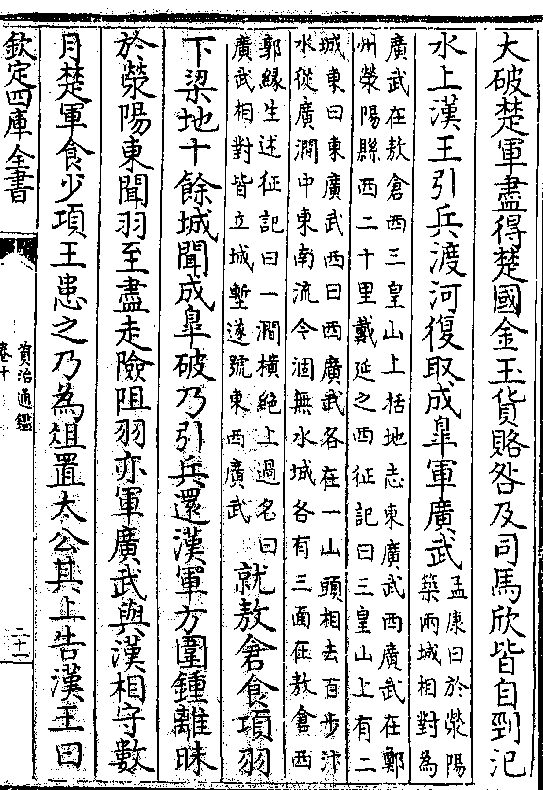 大破楚軍盡得楚國金玉貨賂咎及司馬欣皆自剄汜
水上漢王引兵渡河復取成臯軍廣武
孟康曰於滎陽
築兩城相對為
廣武在敖倉西三皇山上括地志東廣武西廣武在鄭
州滎陽縣西二十里戴延之西征記曰三皇山上有二
城東曰東廣武西曰西廣武各在一山頭相去百步汴
水從廣澗中東南流今涸無水城各有三面在敖倉西
郭緣生述征記曰一澗橫絶上過名曰
廣武相對皆立城塹遂號東西廣武
就敖倉食項羽
下梁地十餘城聞成臯破乃引兵還漢軍方圍鍾離昧
於滎陽東聞羽至盡走險阻羽亦軍廣武與漢相守數
月楚軍食少項王患之乃為俎置太公其上告漢王曰
欽定四庫全書
資治通鑑
卷十
二十一